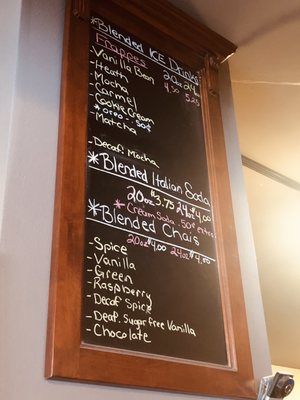 *Blended ICE Drinks
Frappes 20oz 24oz
4.50 5.25
- Vanilla Bean
- Heath
- Mocha
- Carmel
- Cookie Cream
- Matcha
- Decaf Mocha
*Blended Italian Soda
20oz $3.75 24oz $4.00
*Cream Soda 50¢ extra
*Blended Chais
20oz $4.00 24oz $4.50
- Spice
- Vanilla
- Green
- Raspberry
- Decaf Spice
- Decaf. Sugar free Vanilla
- Chocolate